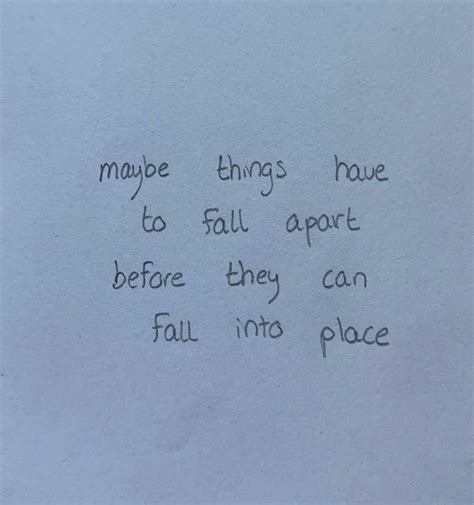 maybe things have
to fall apart
before they can
fall into place